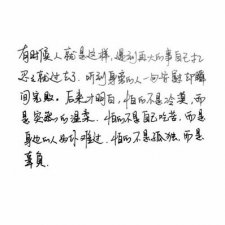 有时候人就是这样,遇到再大的事自己扛
忍忍就过去了.听到身旁的人一句安慰却瞬
间完败。后来才明白,怕的不是冷漠,而
是突然的温柔.怕的不是自己吃苦.而是
身边的人为你难过.怕的不是孤独.而是
辜负.